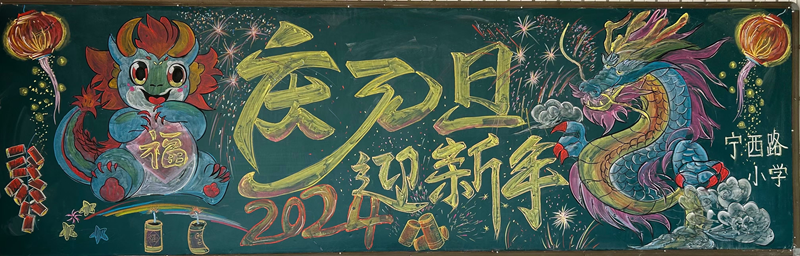 福
庆元旦
2024迎新年
宁西路
小学